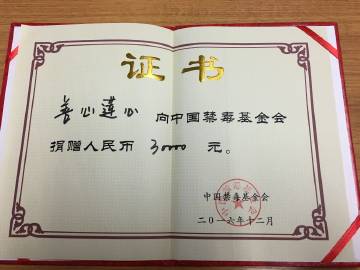 证书
善心莲心 向中国禁毒基金会
捐赠人民币 30000 元。
中国禁毒基金会
二〇一六年十二月